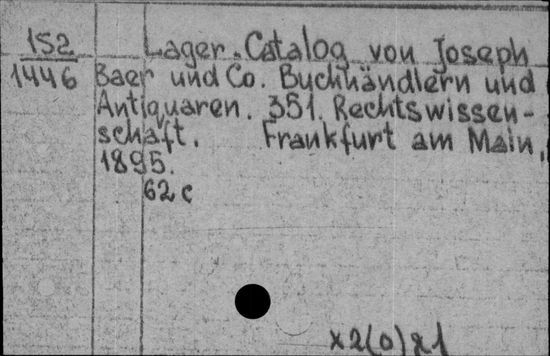 152 Lager-Catalog von Joseph
1446 Baer und Co. Buchhändlern und
Antiquaren. 351. Rechtswissen-
schaft. Frankfurt am Main,
1895.
62 c
x2(0)&1